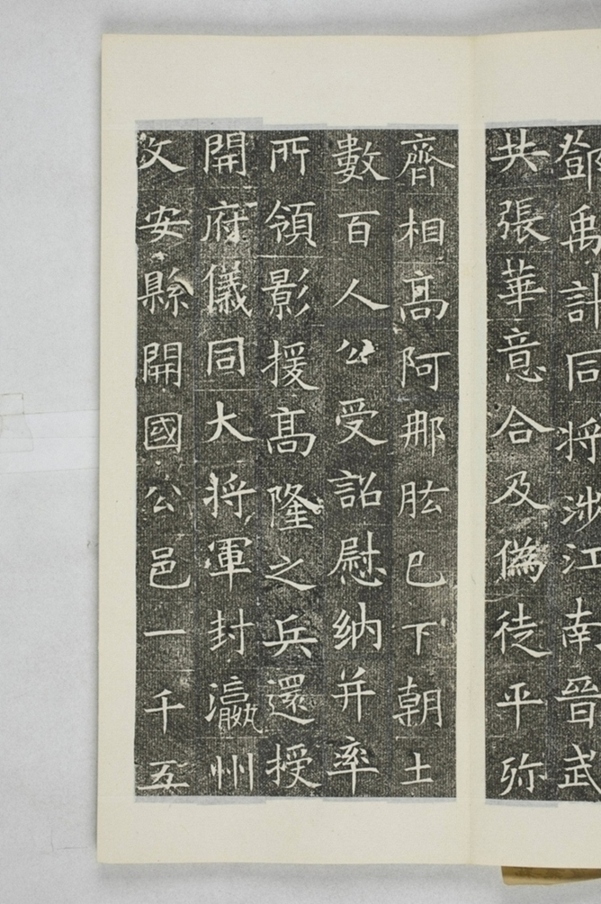 鄧禹計同将涉江南晉武
共張華意合及偽徒平殄
齊相高阿那肱已下朝士
數百人公受詔慰納并率
所領影援高隆之兵還授
開府儀同大将軍封瀛州
文安縣開國公邑一千五